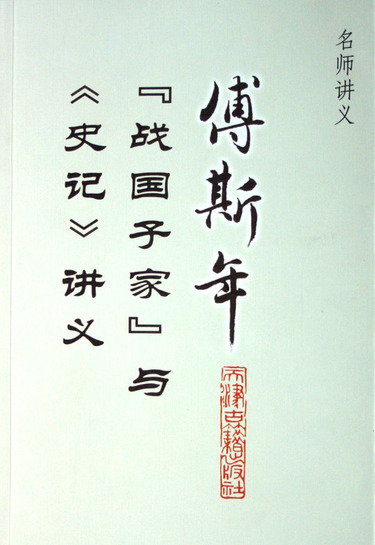 名师讲义
傅斯年
『战国子家』与
《史记》讲义
天津古籍出版社